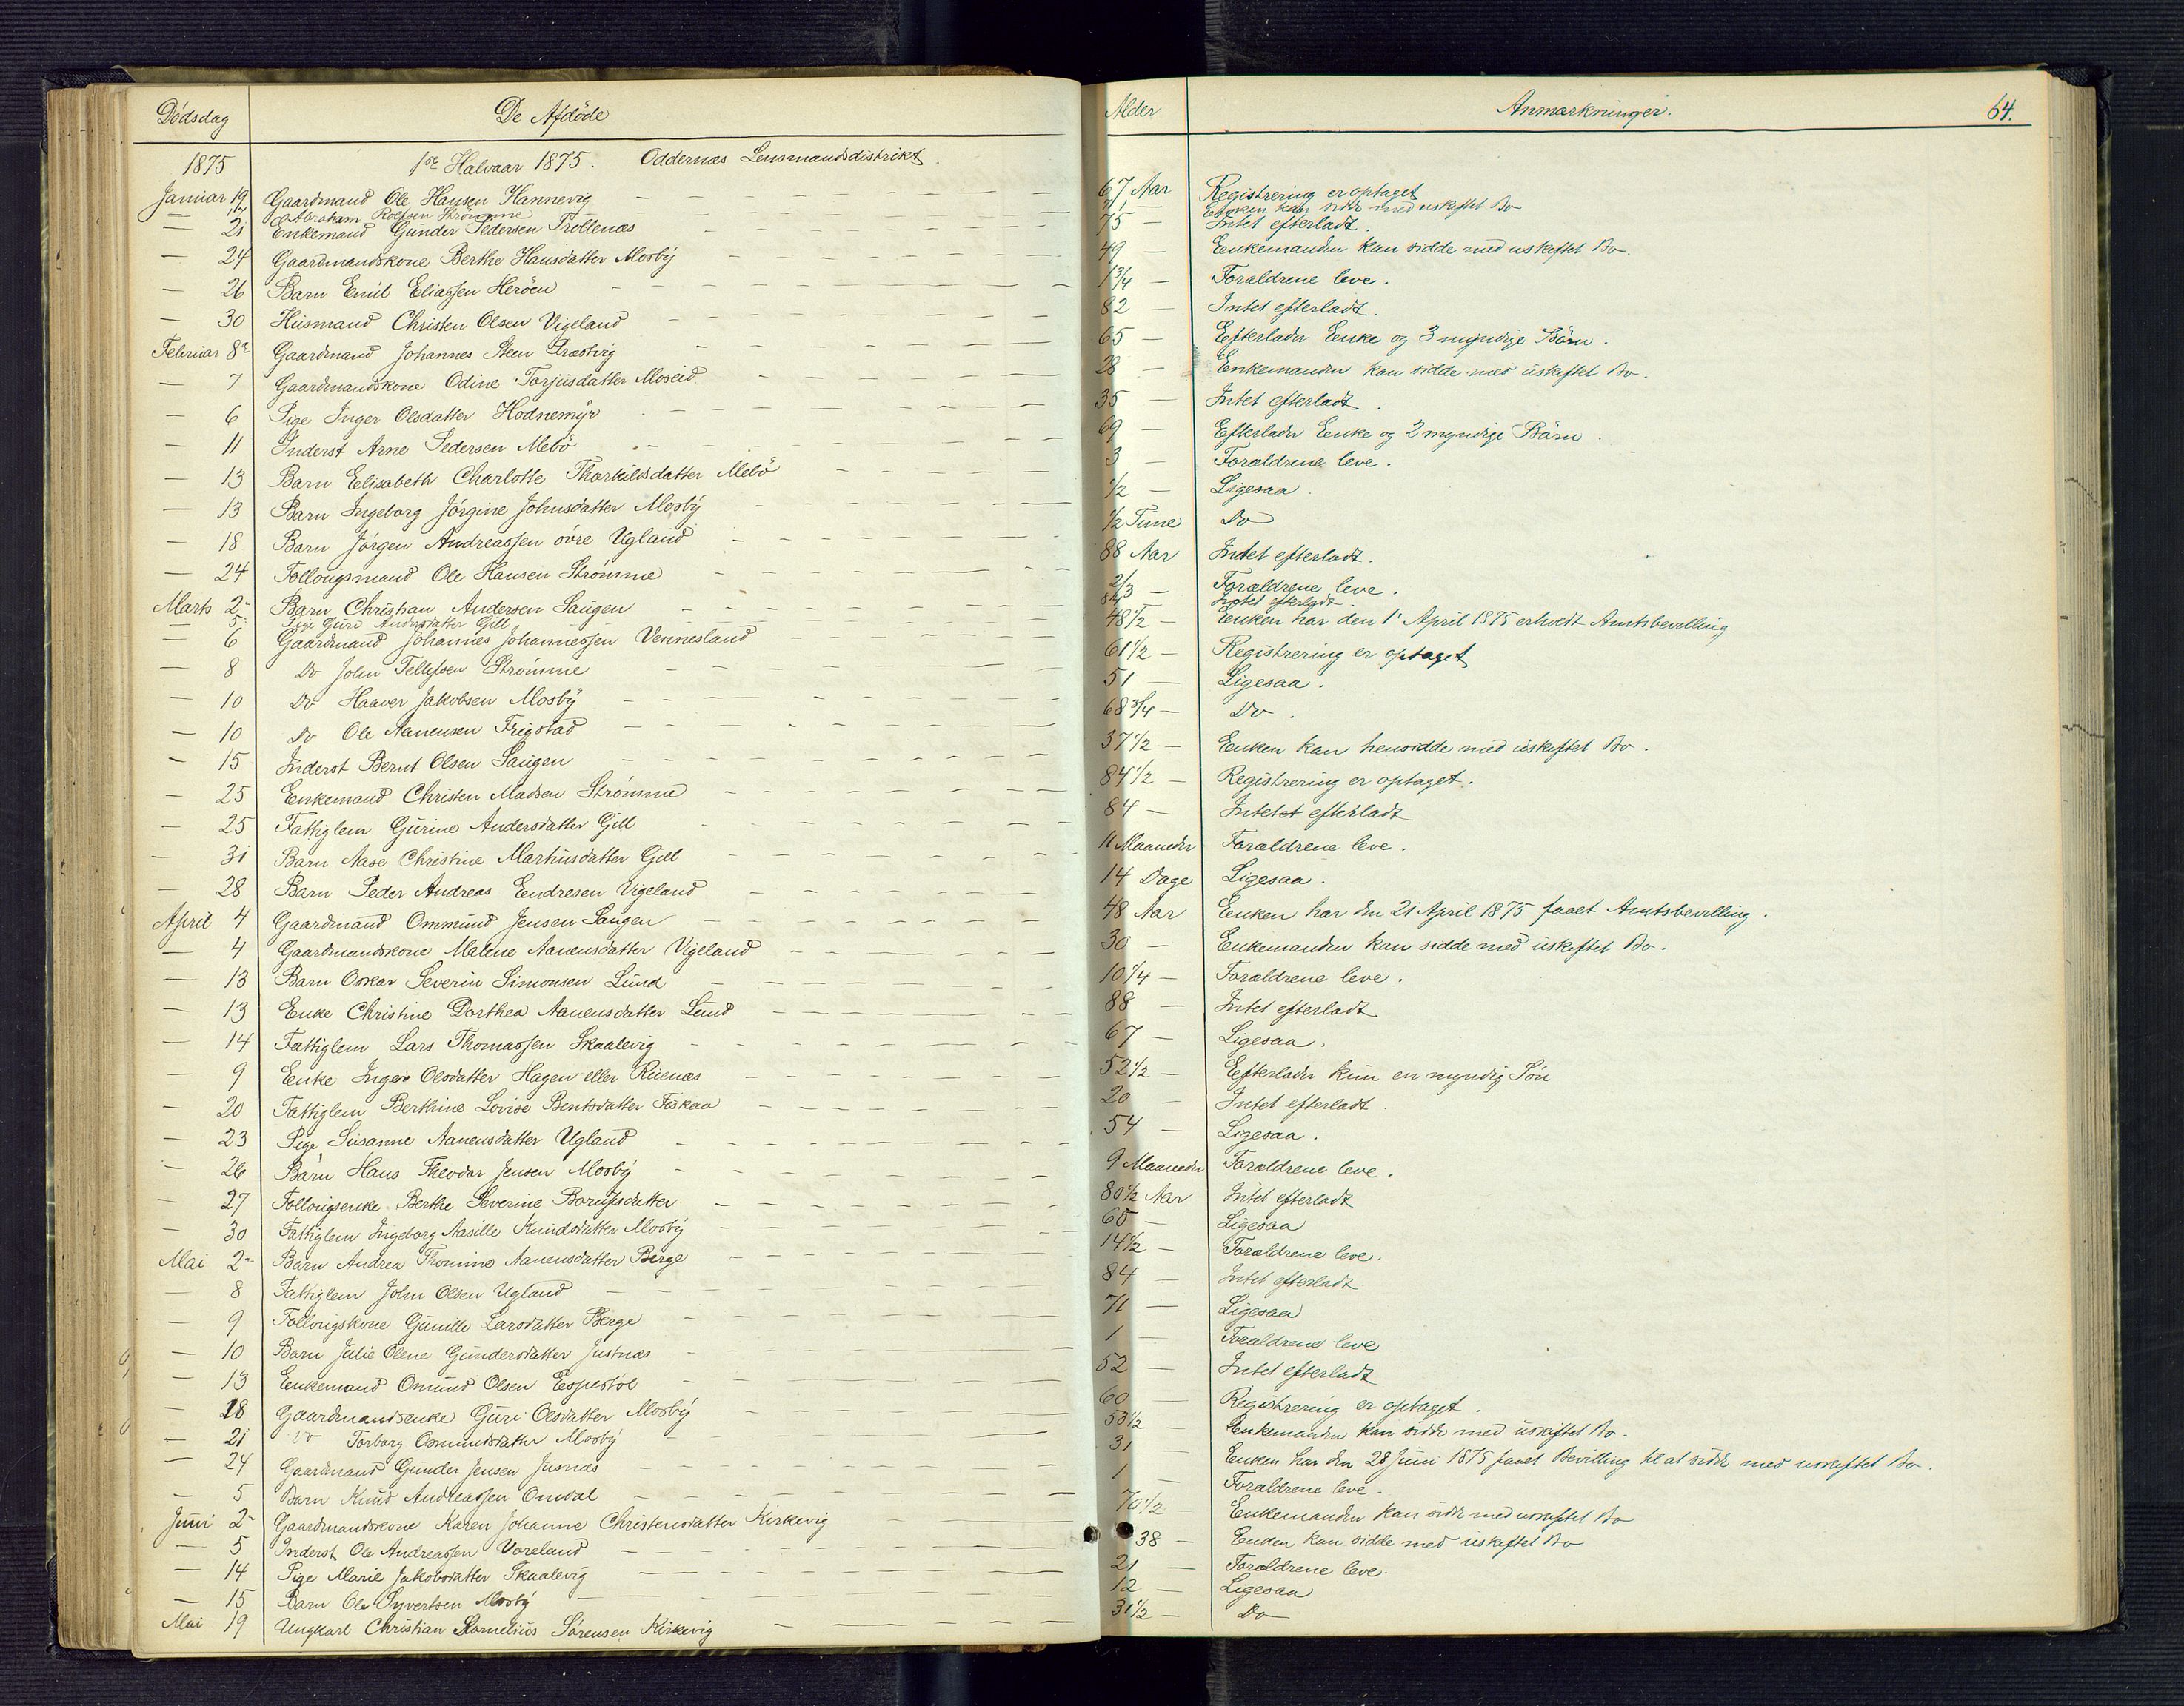 Dödsdag De Afdöde Alder Anmærkninger. 64.
1875 1ste Halvaar 1875. Oddernæs Lensmandsdistrikt.
Januar 19 Gaardmand Ole Hansen Hannevig 67 Aar Registrering er optaget
Abraham Roelsen Strömme Enken kan sidde med uskiftet Bo
— 21 Enkemand Gunder Pedersen Troltenæs 75 — Intet efterladt.
— 24 Gaardmandskone Berthe Hansdatter Mosby 49 — Enkemanden kan sidde med uskiftet Bo.
— 26 Barn Emil Eliassen Heröen 1 3/4 — Forældrene leve.
— 30 Husmand Christen Olsen Vigeland 82 — Intet efterladt.
Februar 8de Gaardmand Johannes Steen Præstvig 65 — Efterlader Enke og 3 myndige Börn.
— 7 Gaardmandskone Odine Torjusdatter Moseid 28 — Enkemanden kan sidde med uskiftet Bo.
— 6 Pige Inger Olsdatter Hodnemyr 35 — Intet efterladt.
— 11 Inderst Arne Pedersen Mebö 69 — Efterlader Enke og 2 myndige Börn.
— 13 Barn Elisabeth Charlotte Thorkildsdatter Mebö 3 — Forældrene leve.
— 13 Barn Ingeborg Jörgine Johnsdatter Mosby 1/2 — Ligesaa
— 18 Barn Jörgen Andreassen övre Ugland 1/2 Time Do
— 24 Follougsmand Ole Hansen Strömme 88 Aar Intet efterladt.
Marts 2- Barn Christian Andersen Saugen 2/3 — Forældrene leve.
— 5- Pige Guri Andersdatter Gill 84 Intet efterladt.
— 6 Gaardmand Johannes Johannessen Vennesland 48 1/2 — Enken har den 1' April 1875 erholdt Amtsbevilling
— 8 Do John Tellefsen Strömme 61 1/2 — Registrering er optaget
— 10 Do Haaver Jakobsen Mosby 51 — Ligesaa.
— 10 Do Ole Aanensen Frigstad 68 3/4 — Do.
— 15 Inderst Bernt Olsen Saugen 37 1/2 — Enken kan hensidde med uskiftet Bo.
— 25 Enkemand Christen Madsen Strömme 84 1/2 — Registrering er optaget.
— 25 Fattiglem Gurine Andersdatter Gill 84 — Intetet efterladt
— 31 Barn Aase Christine Martinsdatter Gill 11 Maaneder Forældrene leve.
— 28 Barn Peder Andreas Endresen Vigeland 14 Dage Ligesaa.
April 4 Gaardmand Ommund Jensen Saugen 48 Aar Enken har den 21 April 1875 faaet Amtsbevilling.
— 4 Gaardmandskone Malene Aanensdatter Vigeland 30 — Enkemanden kan sidde med uskiftet Bo.
— 13 Barn Oskar Severin Simonsen Lund 10 1/4 — Forældrene leve.
— 13 Enke Christine Dorthea Aanensdatter Lund 88 — Intet efterladt
— 14 Fattiglem Lars Thomassen Skaalevig 67 — Ligesaa.
— 9 Enke Inger Olsdatter Hagen eller Ruenæs 52 1/2 — Efterlader kun en myndig Sön
— 20 Fattiglem Berthine Lovise Bentsdatter Fiskaa 20 — Intet efterladt.
— 23 Pige Susanne Aanensdatter Ugland 54 — Ligesaa.
— 26 Barn Hans Theodor Jensen Mosby 9 Maaneder Forældrene leve.
— 27 Follougsenke Berthe Severine Borufsdatter 80 1/2 Aar Intet efterladt
— 30 Fattiglem Ingeborg Aasille Knudsdatter Mosby 65 — Ligesaa
Mai 2- Barn Andrea Thomine Aanensdatter Berge 14 1/2 — Forældrene leve.
— 8 Fattiglem John Olsen Ugland 84 — Intet efterladt
— 9 Follougskone Gunille Larsdatter Berge 71 — Ligesaa
— 10 Barn Julie Olene Gundersdatter Justnæs 1 — Forældrene leve
— 13 Enkemand Omund Olsen Eegestöl 52 — Intet efterladt
— 18 Gaardmandsenke Guri Olsdatter Mosby 60 — Registrering er optaget.
— 21 Do Torborg Osmundsdatter Mosby 53 1/2 Enkemanden kan sidde med uskiftet Bo.
— 24 Gaardmand Gunder Jensen Jusnæs 31 — Enken har den 28 Juni 1875 faaet Bevilling til at sidde med uskiftet Bo.
— 5 Barn Knud Andreassen Omdal 1 — Forældrene leve.
Juni 2- Gaardmandskone Karen Johanne Christensdatter Kirkevig 70 1/2 — Enkemanden kan sidde med uskiftet Bo
— 5 Inderst Ole Andreassen Voreland 38 — Enken kan sidde med uskiftet Bo
— 14 Pige Marie Jakobsdatter Skaalevig 21 — Forældrene leve.
— 15 Barn Ole Syvertsen Mosby 12 — Ligesaa
Mai 19 Ungkarl Christian Kornelius Sörensen Kirkevig 31 1/2 — Do